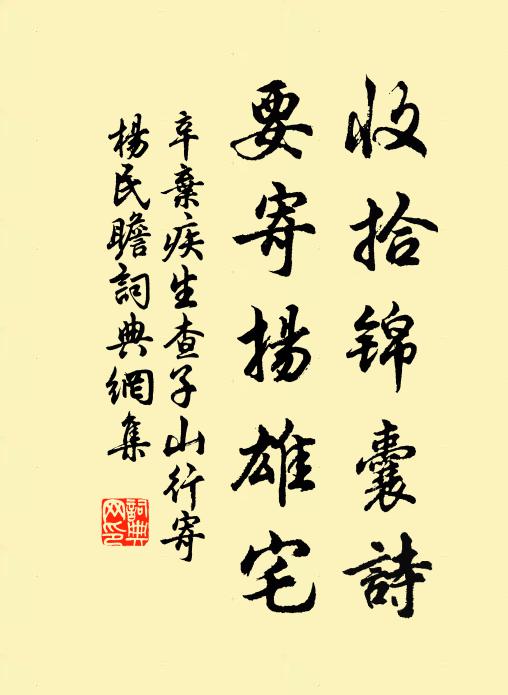 收拾锦囊詩
要寄揚雄宅
辛棄疾生查子山行寄
楊民瞻詞典網集
詞典
网印